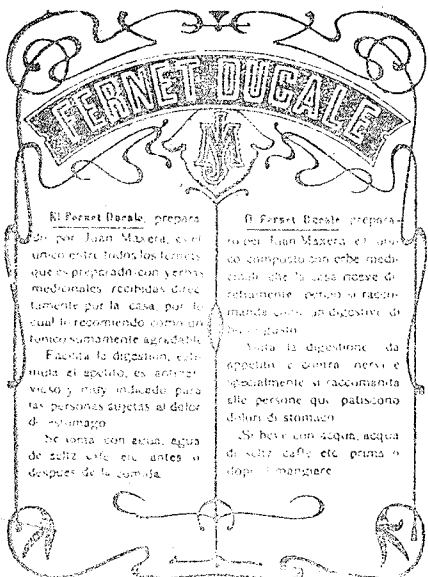 FERNET DUCALE
JM
El Fernet Ducale, prepara-
do por Juan Maxera, es el
unico entre todos los fernets
que es preparado con yerbas
medicinales recibidas direc-
tamente por la casa, por lo
cual lo recomiendo como un
tonico sumamente agradable
Facilita la digestion, esti-
mula el apetito, es antiner-
vioso y muy indicado para
las personas sujetas al dolor
de estomago
Se toma con agua, agua
de seltz cafe etc antes o
despues de la comida
Il Fernet Ducale prepara-
to per Juan Maxera e l' uni-
co composto con erbe medi-
cinali che la casa riceve di-
rettamente percio si racco-
manda come un digestivo di
buon gusto
Aiuta la digestione da
appetito e contra nervi e
specialmente si raccomanda
alle persone que patiscono
dolori di stomaco
Si beve con acqua, acqua
di seltz caffe etc prima o
dopo il mangiare